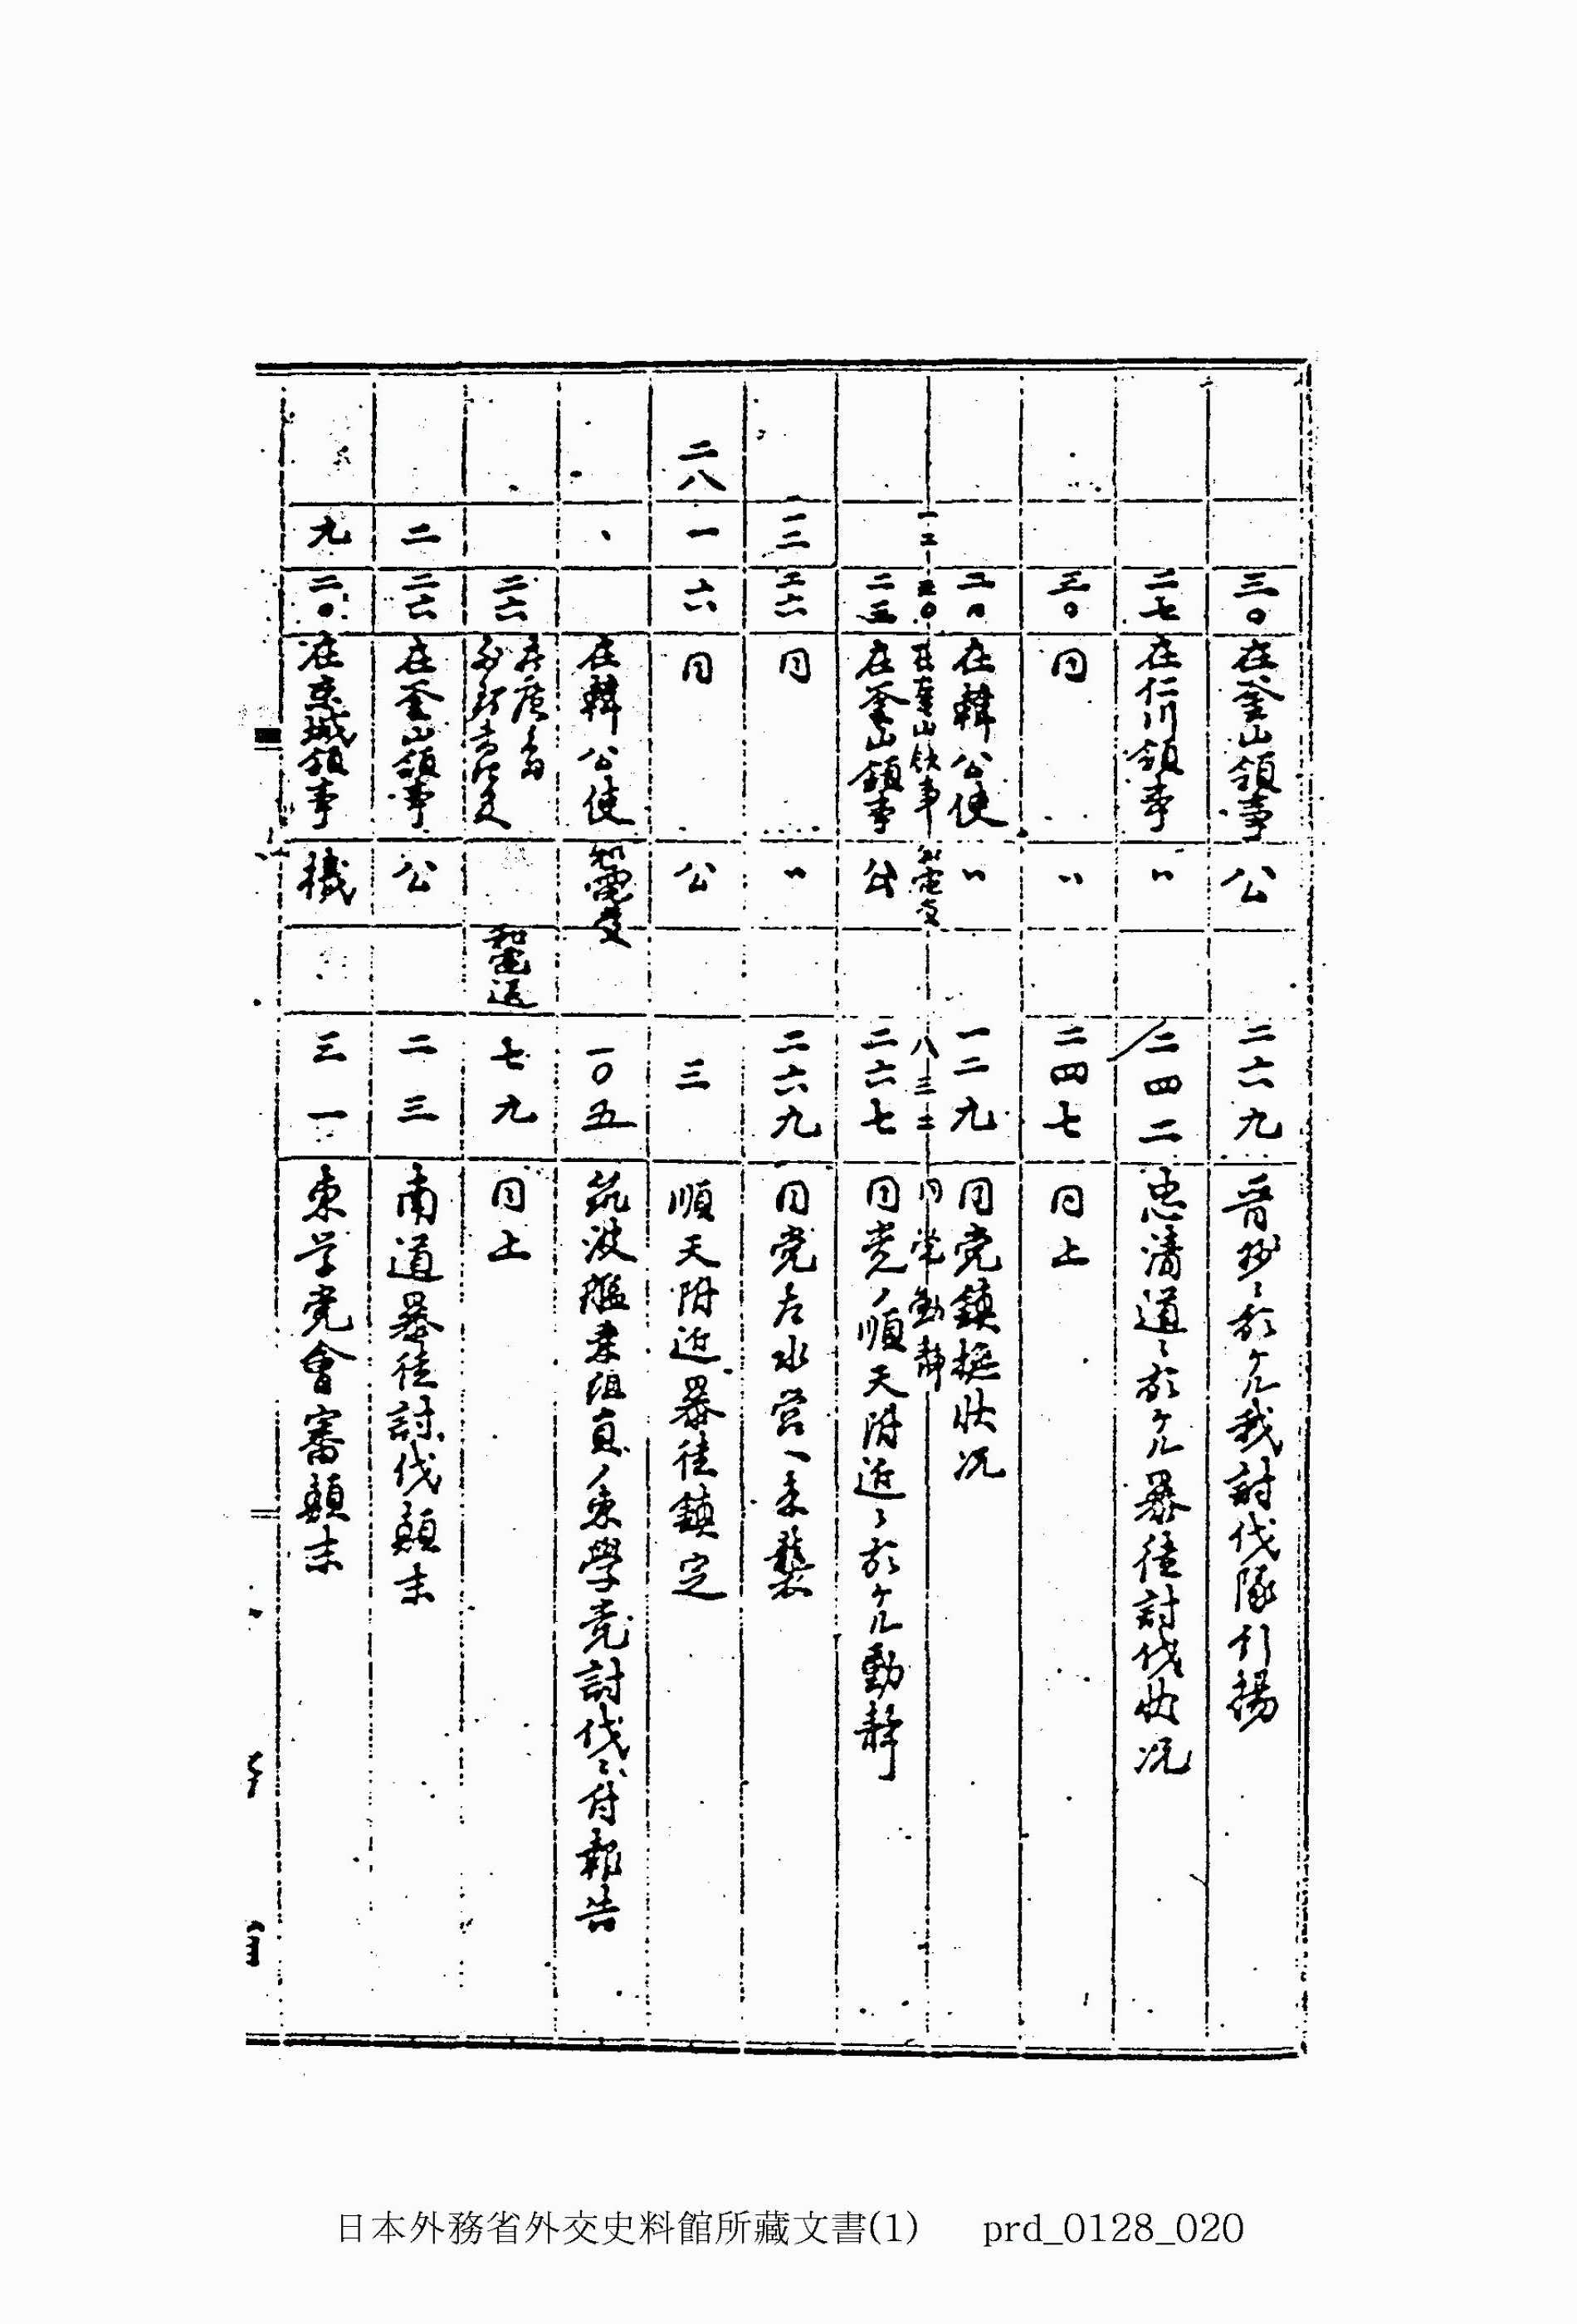 三〇 在釜山領事 公 二六九 晋州ニ於ケル我討伐隊引揚
二七 在仁川領事 〃 二四二 忠清道ニ於ケル暴徒討伐状况
三〇 同 〃 二四七 同上
在韓公使 〃 一二九 同党鎮撫状况
在釜山領事 電受 八三 同党動静
二五 在釜山領事 公 二六七 同党ノ順天附近ニ於ケル動静
二六 同 〃 二六九 同党左水営ヘ来襲
二八 一 六 同 公 三 順天附近暴徒鎮定
在韓公使 電受 一〇五 筑波艦乗組員ノ東學党討伐ニ付報告
二六 電送 七九 同上
二 二六 在釜山領事 公 二三 南道暴徒討伐顛末
九 二〇 在京城領事 機 三一 東学党會審顛末
日本外務省外交史料館所藏文書(1) prd_0128_020